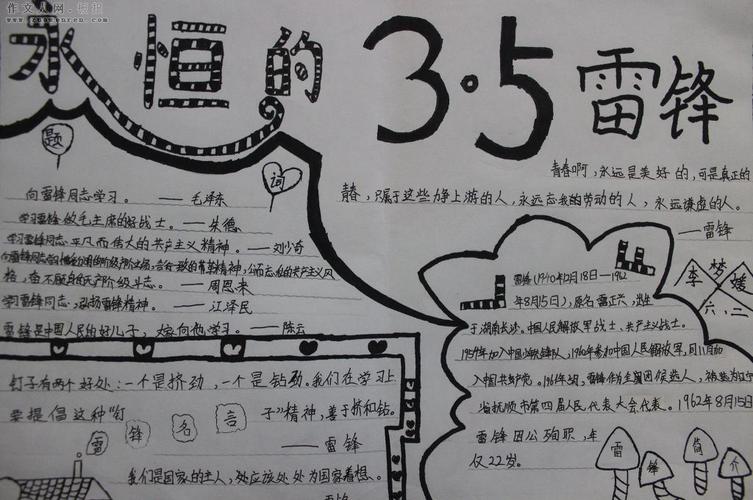 作文人网·板报
zuowenren.com
永恒的
3·5
雷锋
题
词
向雷锋同志学习。——毛泽东
学习雷锋，做毛主席的好战士。——朱德
学习雷锋同志平凡而伟大的共产主义精神。——刘少奇
向雷锋同志学习
的阶级立场，言行一致的革命精神，公而忘私的共产主义风
格，奋不顾身的无产阶级斗志。——周恩来
学习雷锋同志，弘扬雷锋精神。——江泽民
雷锋是中国人民的好儿子，大家向他学习。——陈云
青春啊，永远是美好的，可是真正的
青春，只属于这些力争上游的人，永远忘我的劳动的人，永远谦虚的人。
——雷锋
李梦媛
六，二
雷锋（1940年12月18日——1962
年8月15日），原名雷正兴，出生
于湖南长沙。中国人民解放军战士、共产主义战士。
1957年加入中国共青团，1960年参加中国人民解放军，同11月加
入中国共产党。1961年
雷锋作为
候选人，被选为辽宁
省抚顺市第四届人民代表大会代表。1962年8月15日
雷锋因公殉职，年
仅22岁。
雷锋简介
钉子有两个好处：一个是挤劲，一个是钻劲。我们在学习上
要提倡这种"钉子"精神，善于挤和钻。
——雷锋
雷锋名言
我们是国家的主人，处应该处处为国家着想。